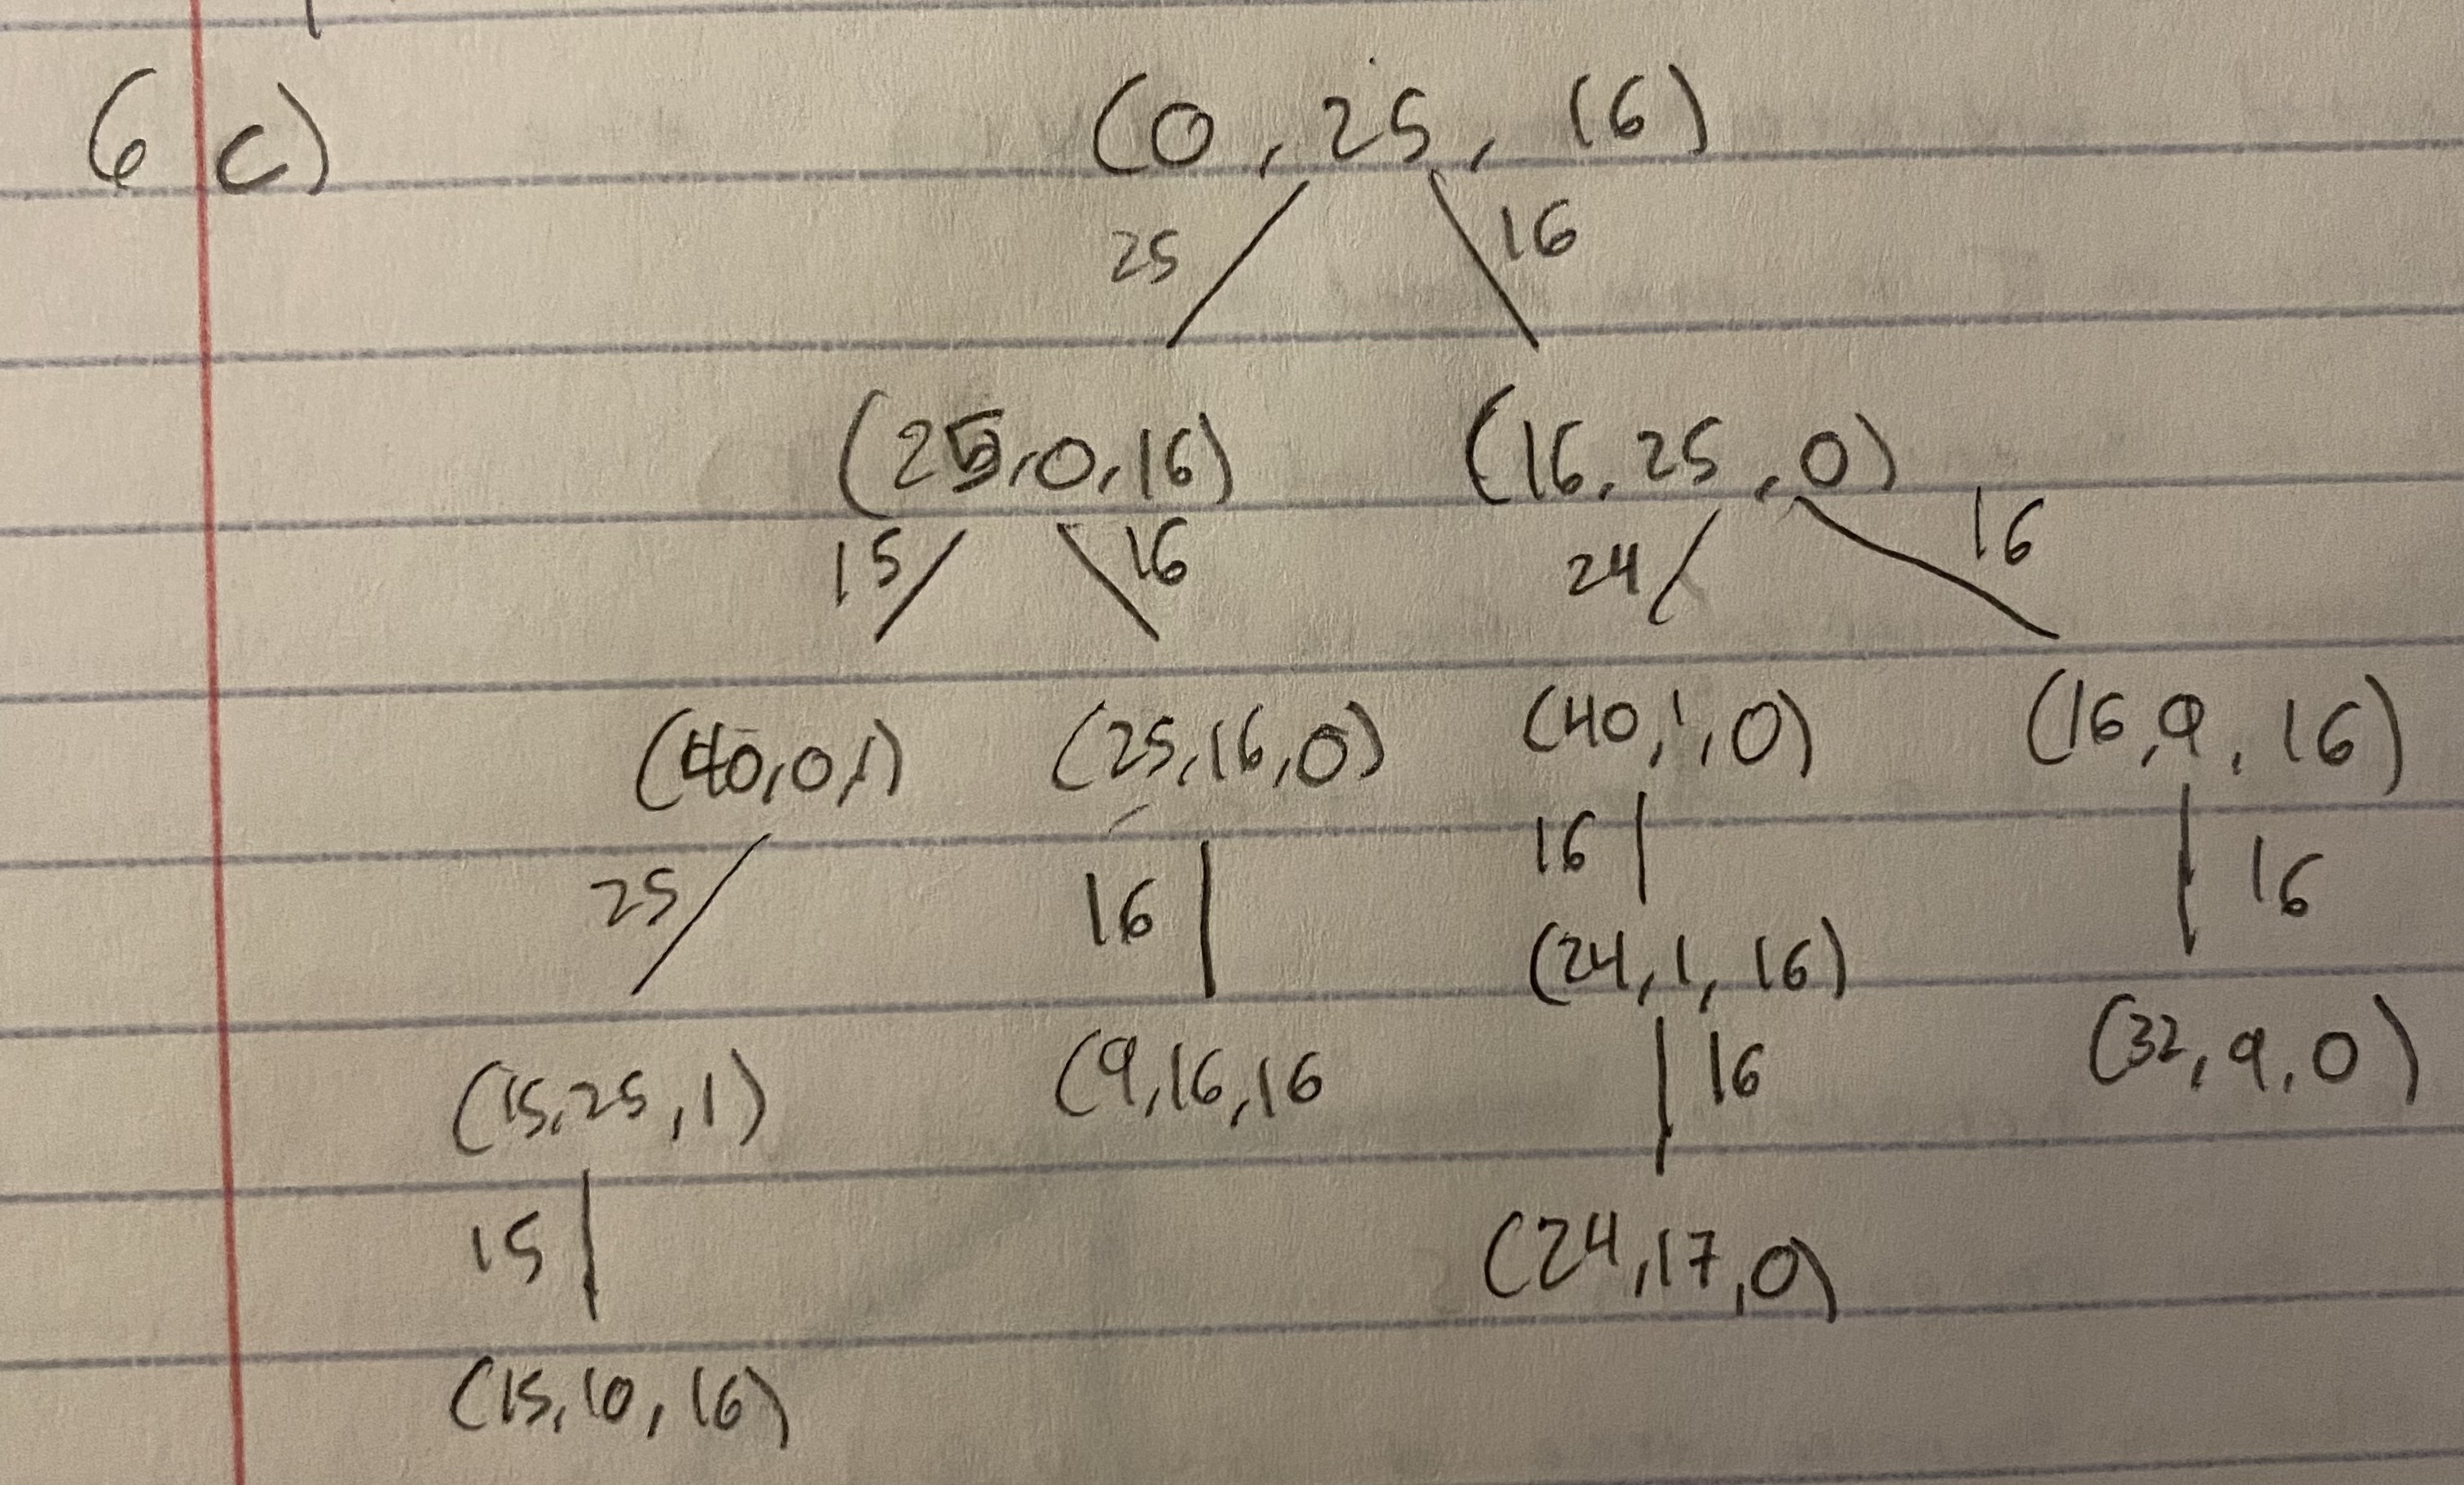 6 c) (0, 25, 16)
25 16
(25,0,16) (16,25,0)
15 16 24 16
(40,0,1) (25,16,0) (40,1,0) (16,9,16)
25 16 16 16
(24,1,16)
(15,25,1) (9,16,16 16 (32,9,0)
15 (24,17,0)
(15,10,16)